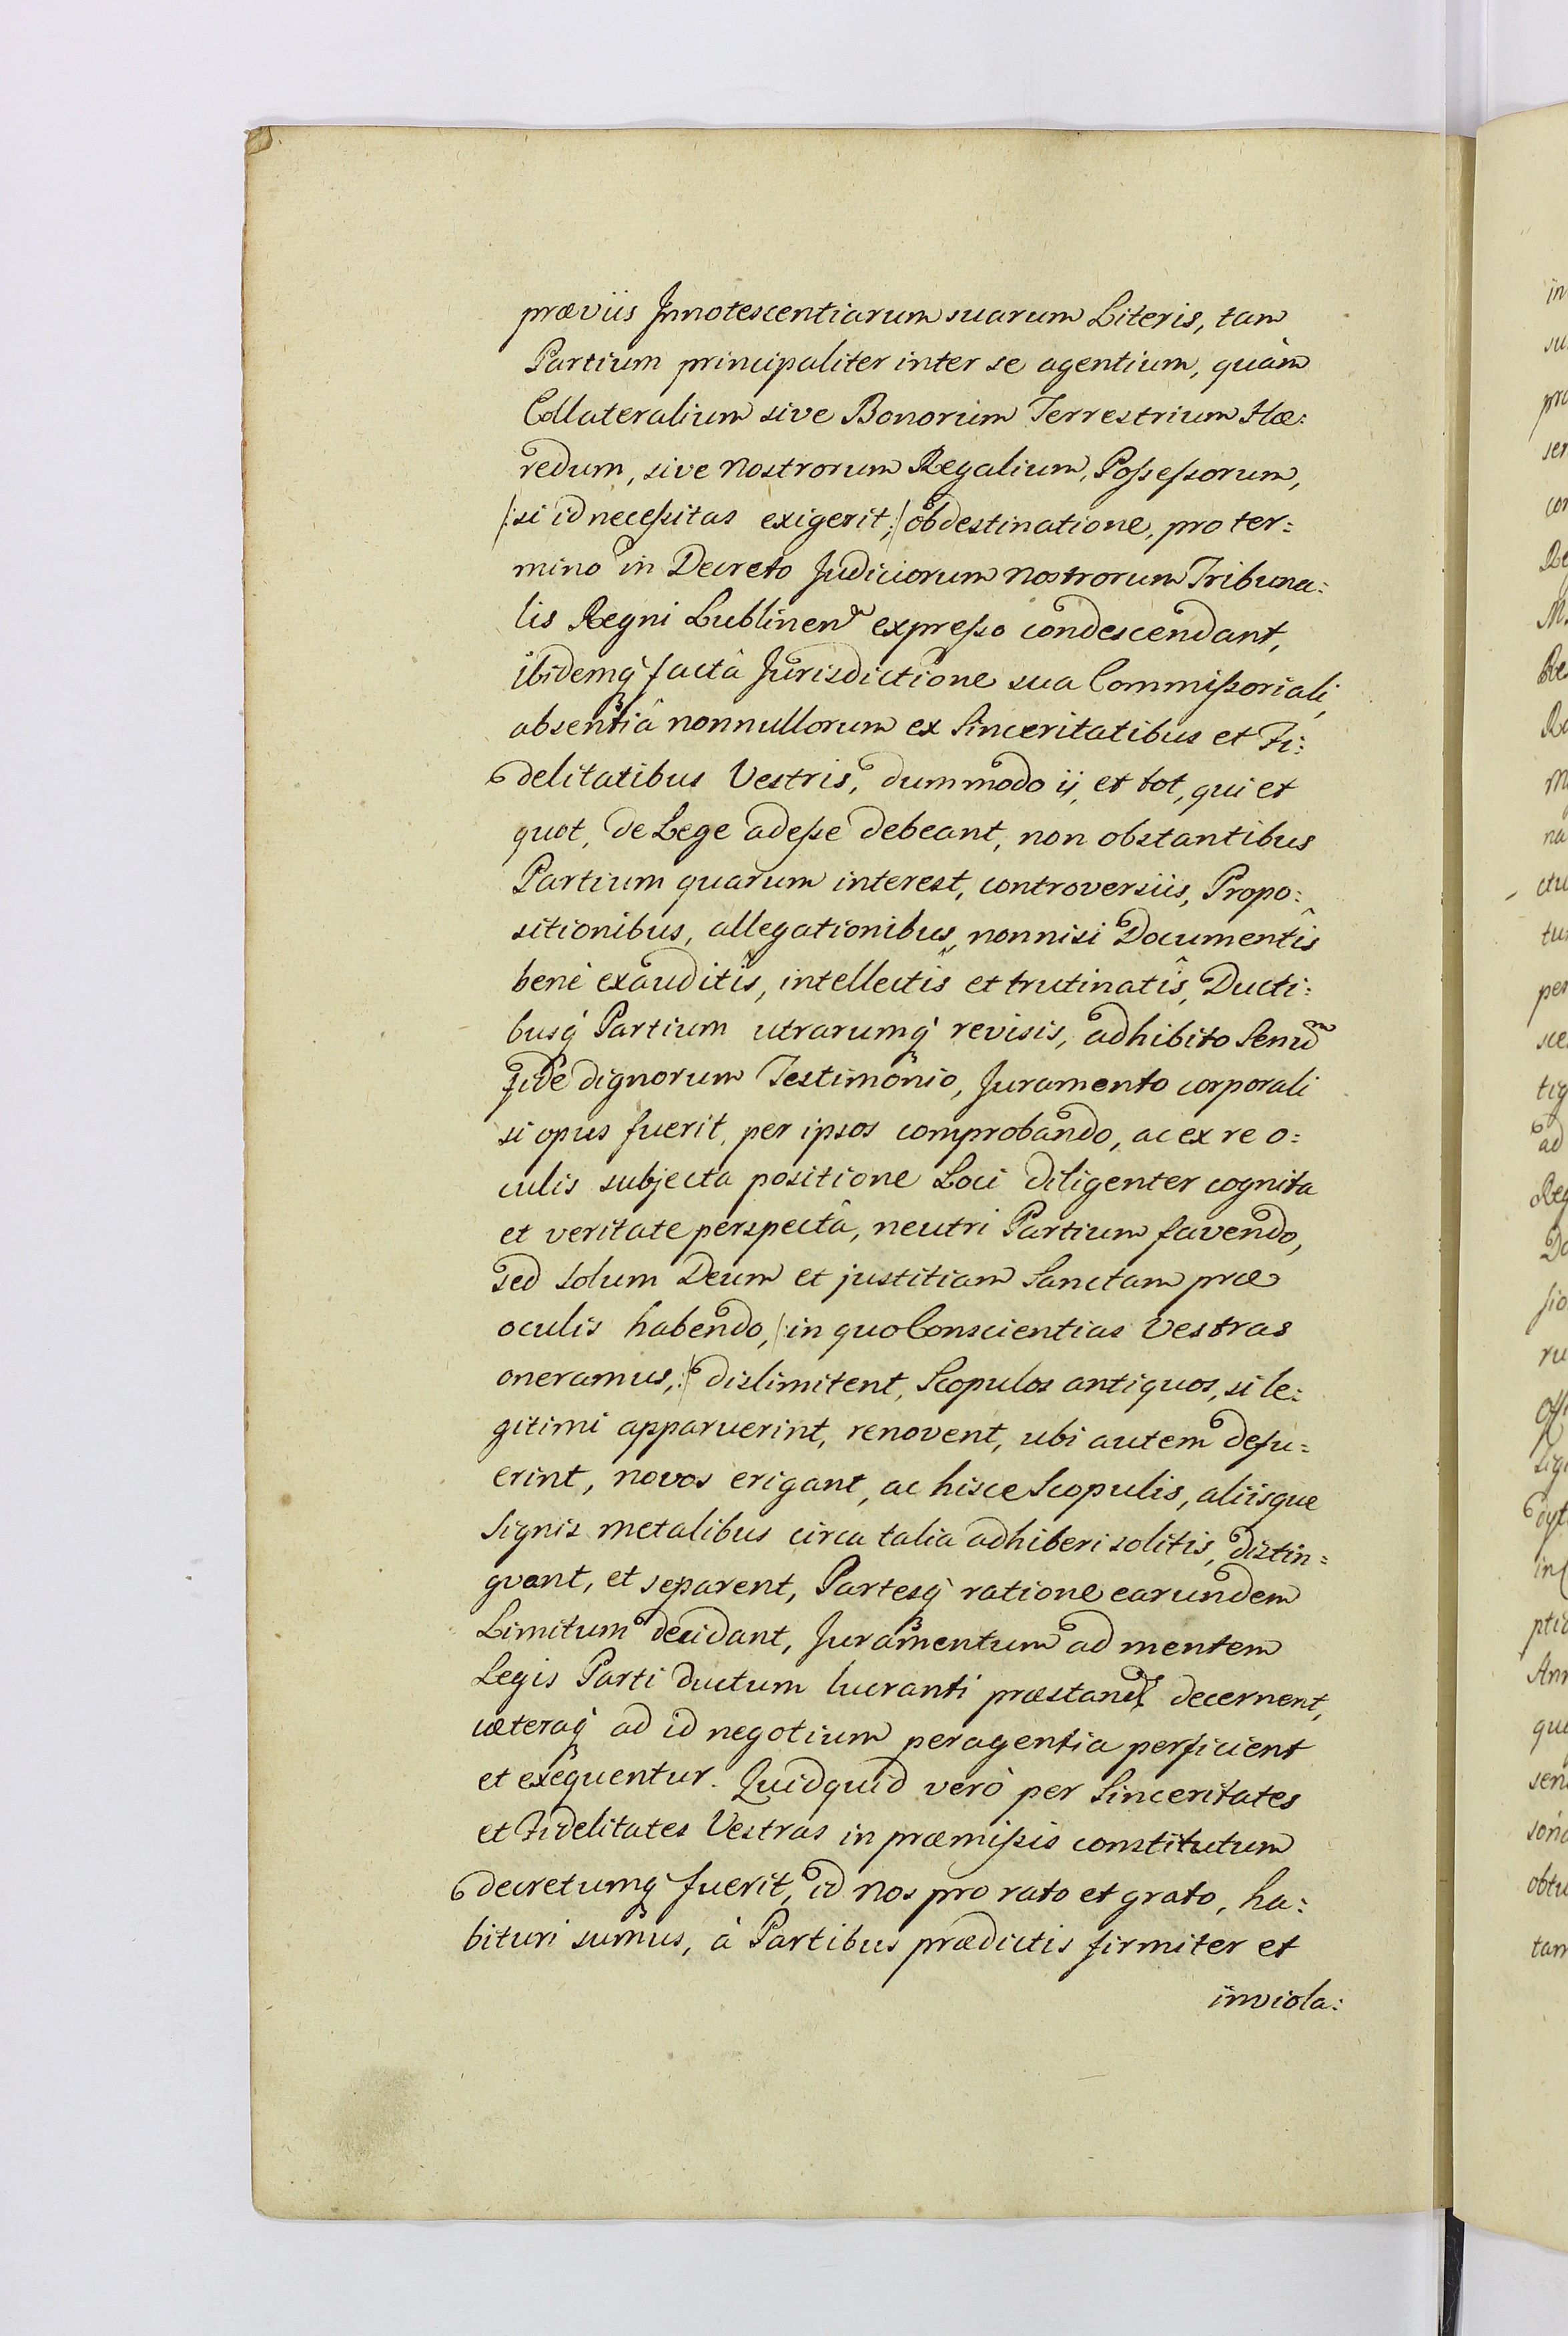 præviis Innotescentiarum suarum Literis, tam
Partium principaliter inter se agentium, quàm
Collateralium sive Bonorum Terrestrium Hæ:
redum, sive nostrorum Regalium, Possessorum,
/:si id necessitas exigerit,:/ obdestinatione, pro ter=
mino in Decreto Judiciorum nostrorum Tribuna:
lis Regni Lublinen expresso condescendant,
ibidemq́ factâ Jurisdictione sua Commissoriali,
absentiâ nonnullorum ex Sinceritatibus et Fi:
delitatibus Vestris, dummodo ij, et tot, qui et
quot, de Lege adesse debeant, non obstantibus
Partium quarum interest, controversiis, Propo:
sitionibus, allegationibus, nonnisi Documentîs
benè exauditîs, intellectîs et trutinatîs, Ducti:
busq́ Partium utrarumq́ revisis, adhibito Senum
fide dignorum Testimonio, Juramento corporali
si opus fuerit, per ipsos comprobando, ac ex re o=
culis subjecta positione Loci diligenter cognita
et veritate perspectâ, neutri Partium favendo,
sed solum Deum et justitiam Sanctam præ
oculis habendo, /:in quo Conscientias Vestras
oneramus,:/ dislimitent, Scopulos antiquos, si le:
gitimi apparuerint, renovent, ubi autem defu=
erint, novos erigant, ac hisce Scopulis, aliisque
Signis metalibus circa talia adhiberi solitis, distin=
guant, et separent, Partesq́ ratione earundem
Limitum decidant, Juramentum ad mentem
Legis Parti ductum lucranti præstand decernent,
cæteraq́ ad id negotium peragentia perficient
et exequentur. Quidquid verò per Sinceritates
et Fidelitates Vestras in præmissis constitutum
decretumq́ fuerit, id nos pro rato et grato, ha:
bituri sumus, à Partibus prædictis firmiter et
inviola: